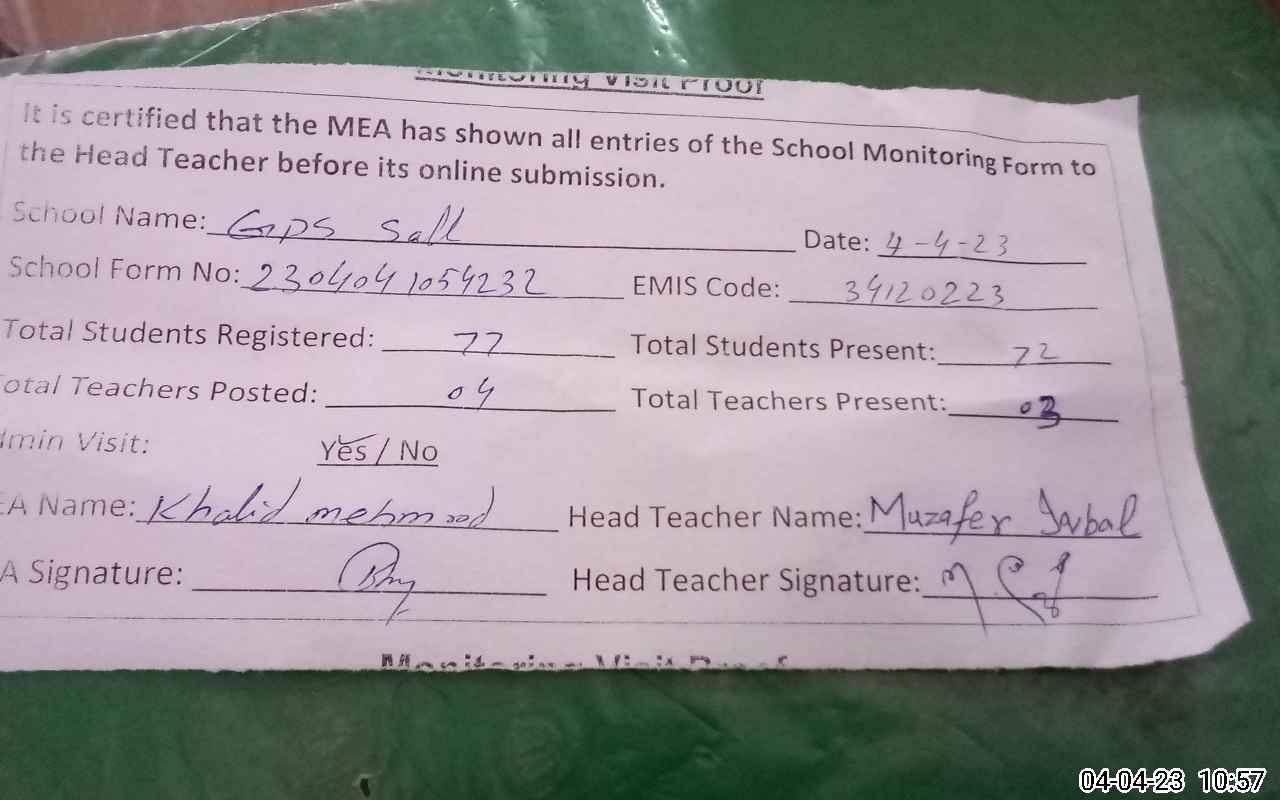 Monitoring Visit Proof
It is certified that the MEA has shown all entries of the School Monitoring Form to
the Head Teacher before its online submission.
School Name: GPS Sall Date: 4-4-23
School Form No: 2304041054232 EMIS Code: 34120223
Total Students Registered: 77 Total Students Present: 72
otal Teachers Posted: 04 Total Teachers Present: 03
dmin Visit: Yes / No
EA Name: Khalid mehmood Head Teacher Name: Muzafer Iqbal
A Signature: Head Teacher Signature:
Monitoring Visit Proof
04-04-23 10:57